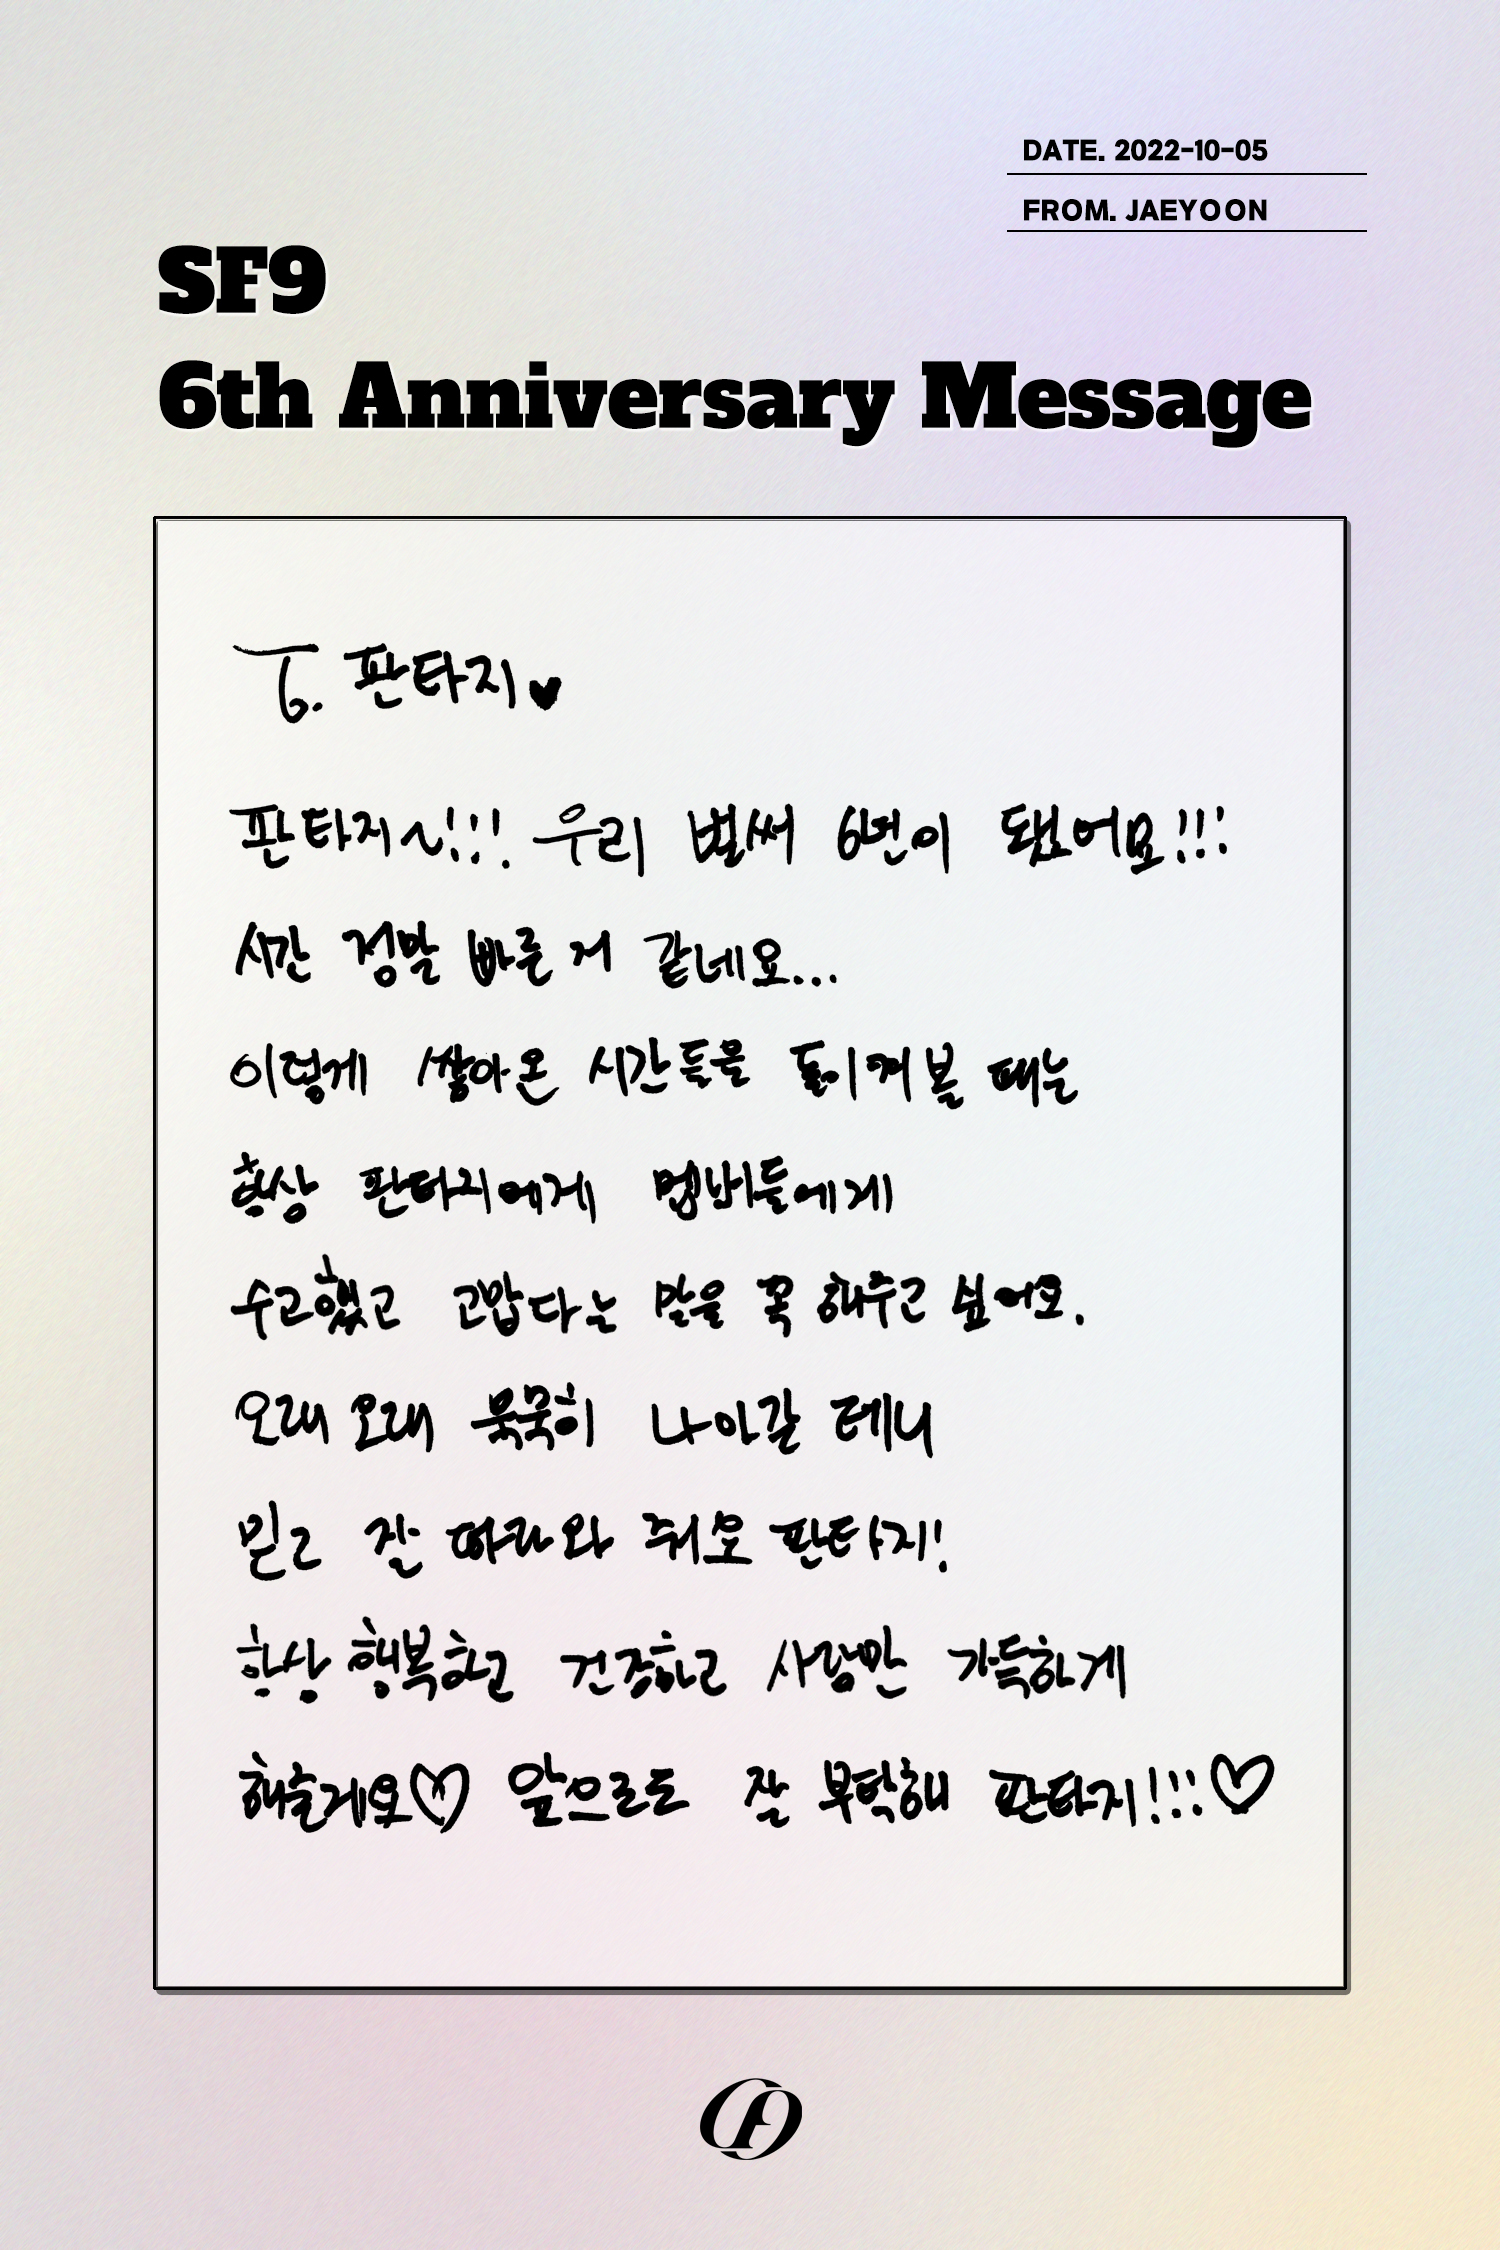 DATE. 2022-10-05
FROM. JAEYOON
SF9
6th Anniversary Message
To. 판타지♥
판타지~!!! 우리 벌써 6년이 됐어요!!!
시간 정말 빠른 거 같네요...
이렇게 쌓아온 시간들을 돌이켜 볼 때는
항상 판타지에게 멤버들에게
수고했고 고맙다는 말을 꼭 해주고 싶어요.
오래 오래 묵묵히 나아갈 테니
믿고 잘 따라와 줘요 판타지!
항상 행복하고 건강하고 사랑만 가득하게
해줄게요♡ 앞으로도 잘 부탁해 판타지!!!♡